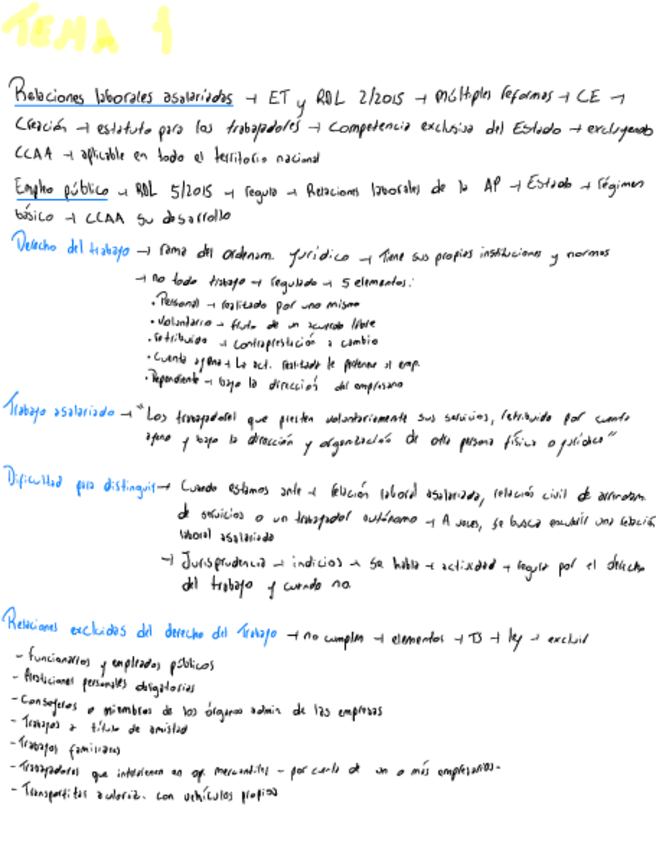 TEMA 1
Relaciones laborales asalariadas → ET y RDL 2/2015 → múltiples reformas → CE →
Creación → estatuto para los trabajadores → Competencia exclusiva del Estado → excluyendo
CCAA → aplicable en todo el territorio nacional
Empleo público → RDL 5/2015 → regula → Relaciones laborales de la AP → Estado → régimen
básico → CCAA su desarrollo
Derecho del trabajo → rama del ordenam. jurídico → Tiene sus propias instituciones y normas
→ no todo trabajo → regulado → 5 elementos:
• Personal → realizado por uno mismo
• Voluntario → fruto de un acuerdo libre
• Retribuido → contraprestación a cambio
• Cuenta ajena → La act. realizada le pertenece al emp.
• Dependiente → bajo la dirección del empresario
Trabajo asalariado → "Los trabajadores que presten voluntariamente sus servicios, retribuido por cuenta
ajena y bajo la dirección y organización de otra persona física o jurídica"
Dificultad para distinguir → Cuando estamos ante → relación laboral asalariada, relación civil de arrendam.
de servicios o un trabajador autónomo → A veces, se busca encubrir una relación
laboral asalariada
→ Jurisprudencia → indicios → se habla → actividad → regula por el derecho
del trabajo y cuando no.
Relaciones excluidas del derecho del Trabajo → no cumplen → elementos → TS → ley → excluir
- Funcionarios y empleados públicos
- Prestaciones personales obligatorias
- Consejeros o miembros de los órganos admin de las empresas
- Trabajos a título de amistad
- Trabajos familiares
- Trabajadores que intervienen en op. mercantiles - por cuenta de un o más empresarios.
- Transportistas autoriz. con vehículos propios